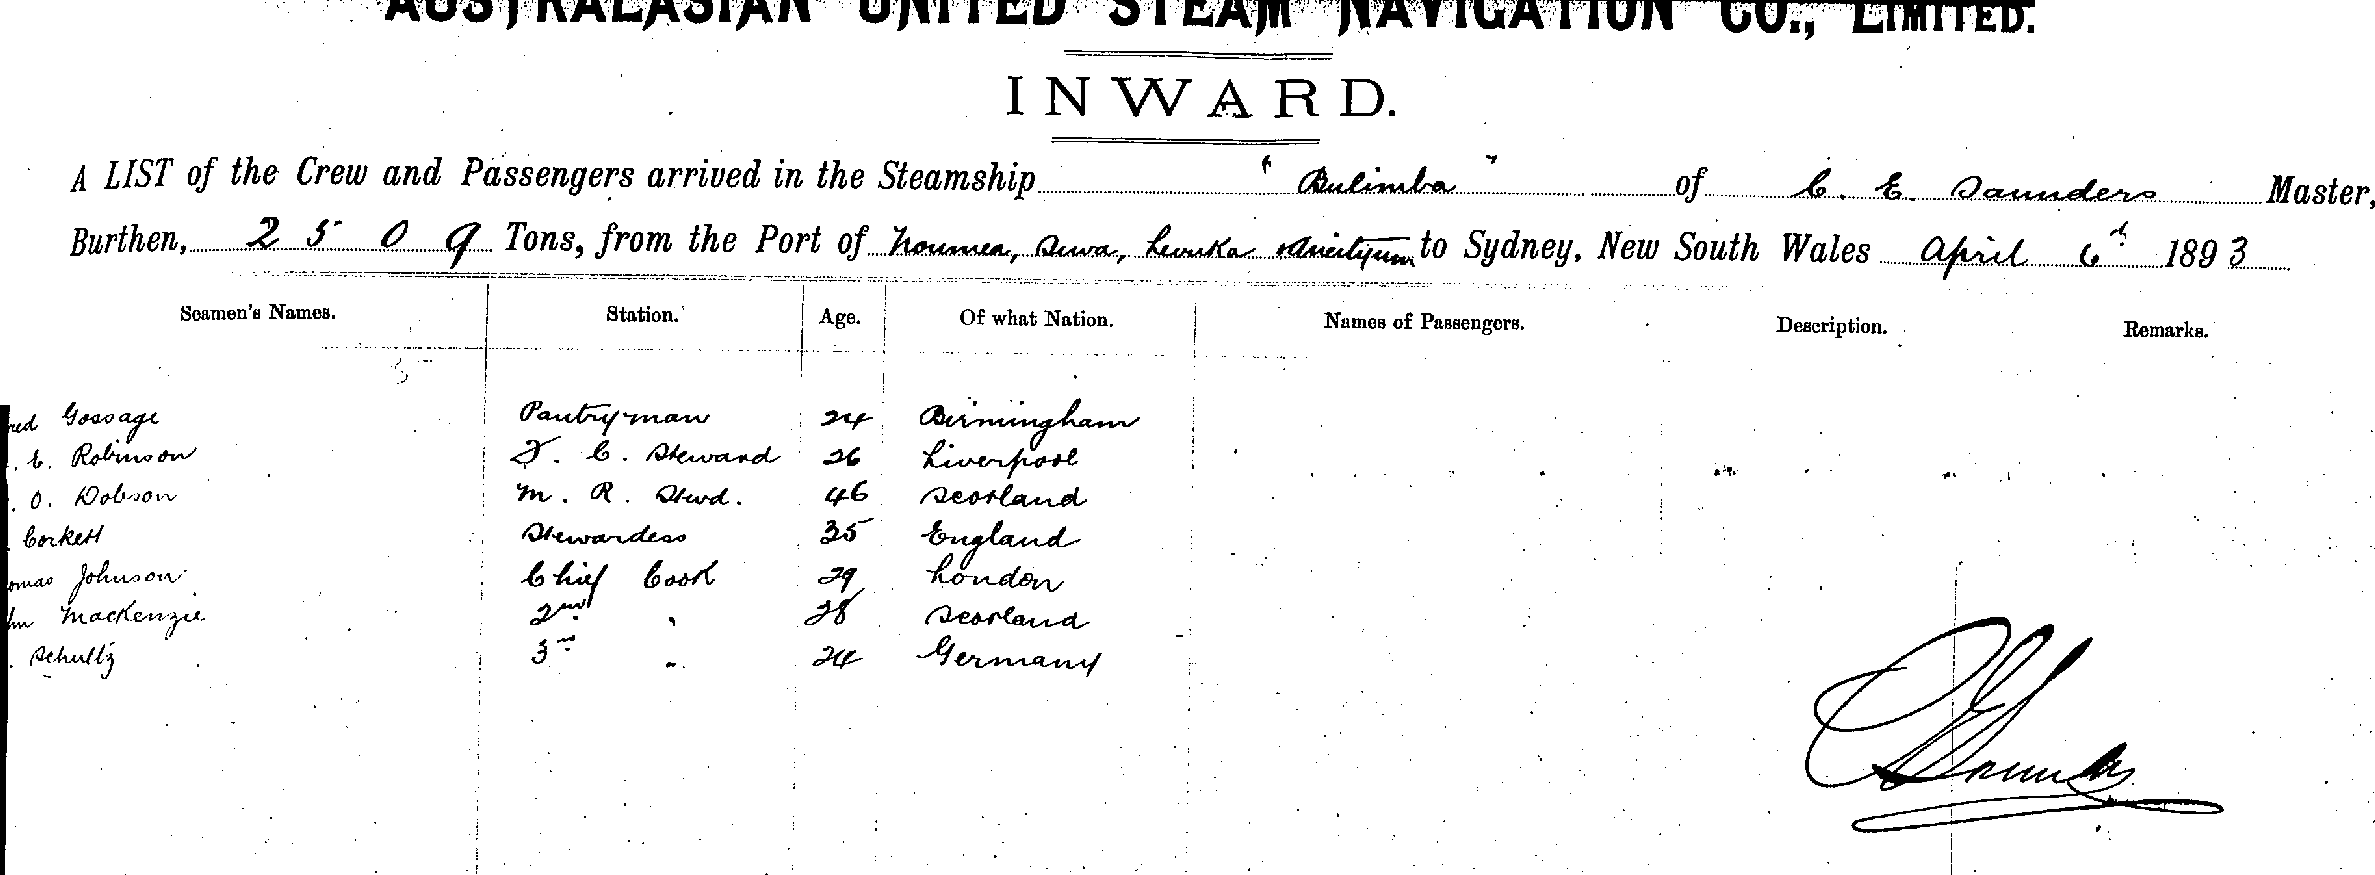 AUSTRALASIAN UNITED STEAM NAVIGATION CO., LIMITED.
INWARD.
A LIST of the Crew and Passengers arrived in the Steamship "Bulimba" of C. E. Saunders Master,
Burthen, 2509 Tons, from the Port of Noumea, Suva, Levuka & Aneityum to Sydney, New South Wales April 6th 1893
Seamen's Names. Station. Age. Of what Nation. Names of Passengers. Description. Remarks.
red Gossage Pantryman 24 Birmingham
. E. Robinson F. C. Steward 26 Liverpool
. O. Dobson M. R. Stwd. 46 Scotland
. Corkett Stewardess 35 England
omas Johnson Chief Cook 29 London
hn Mackenzie 2nd " 28 Scotland
. Schultz 3rd " 24 Germany
C E Saunders